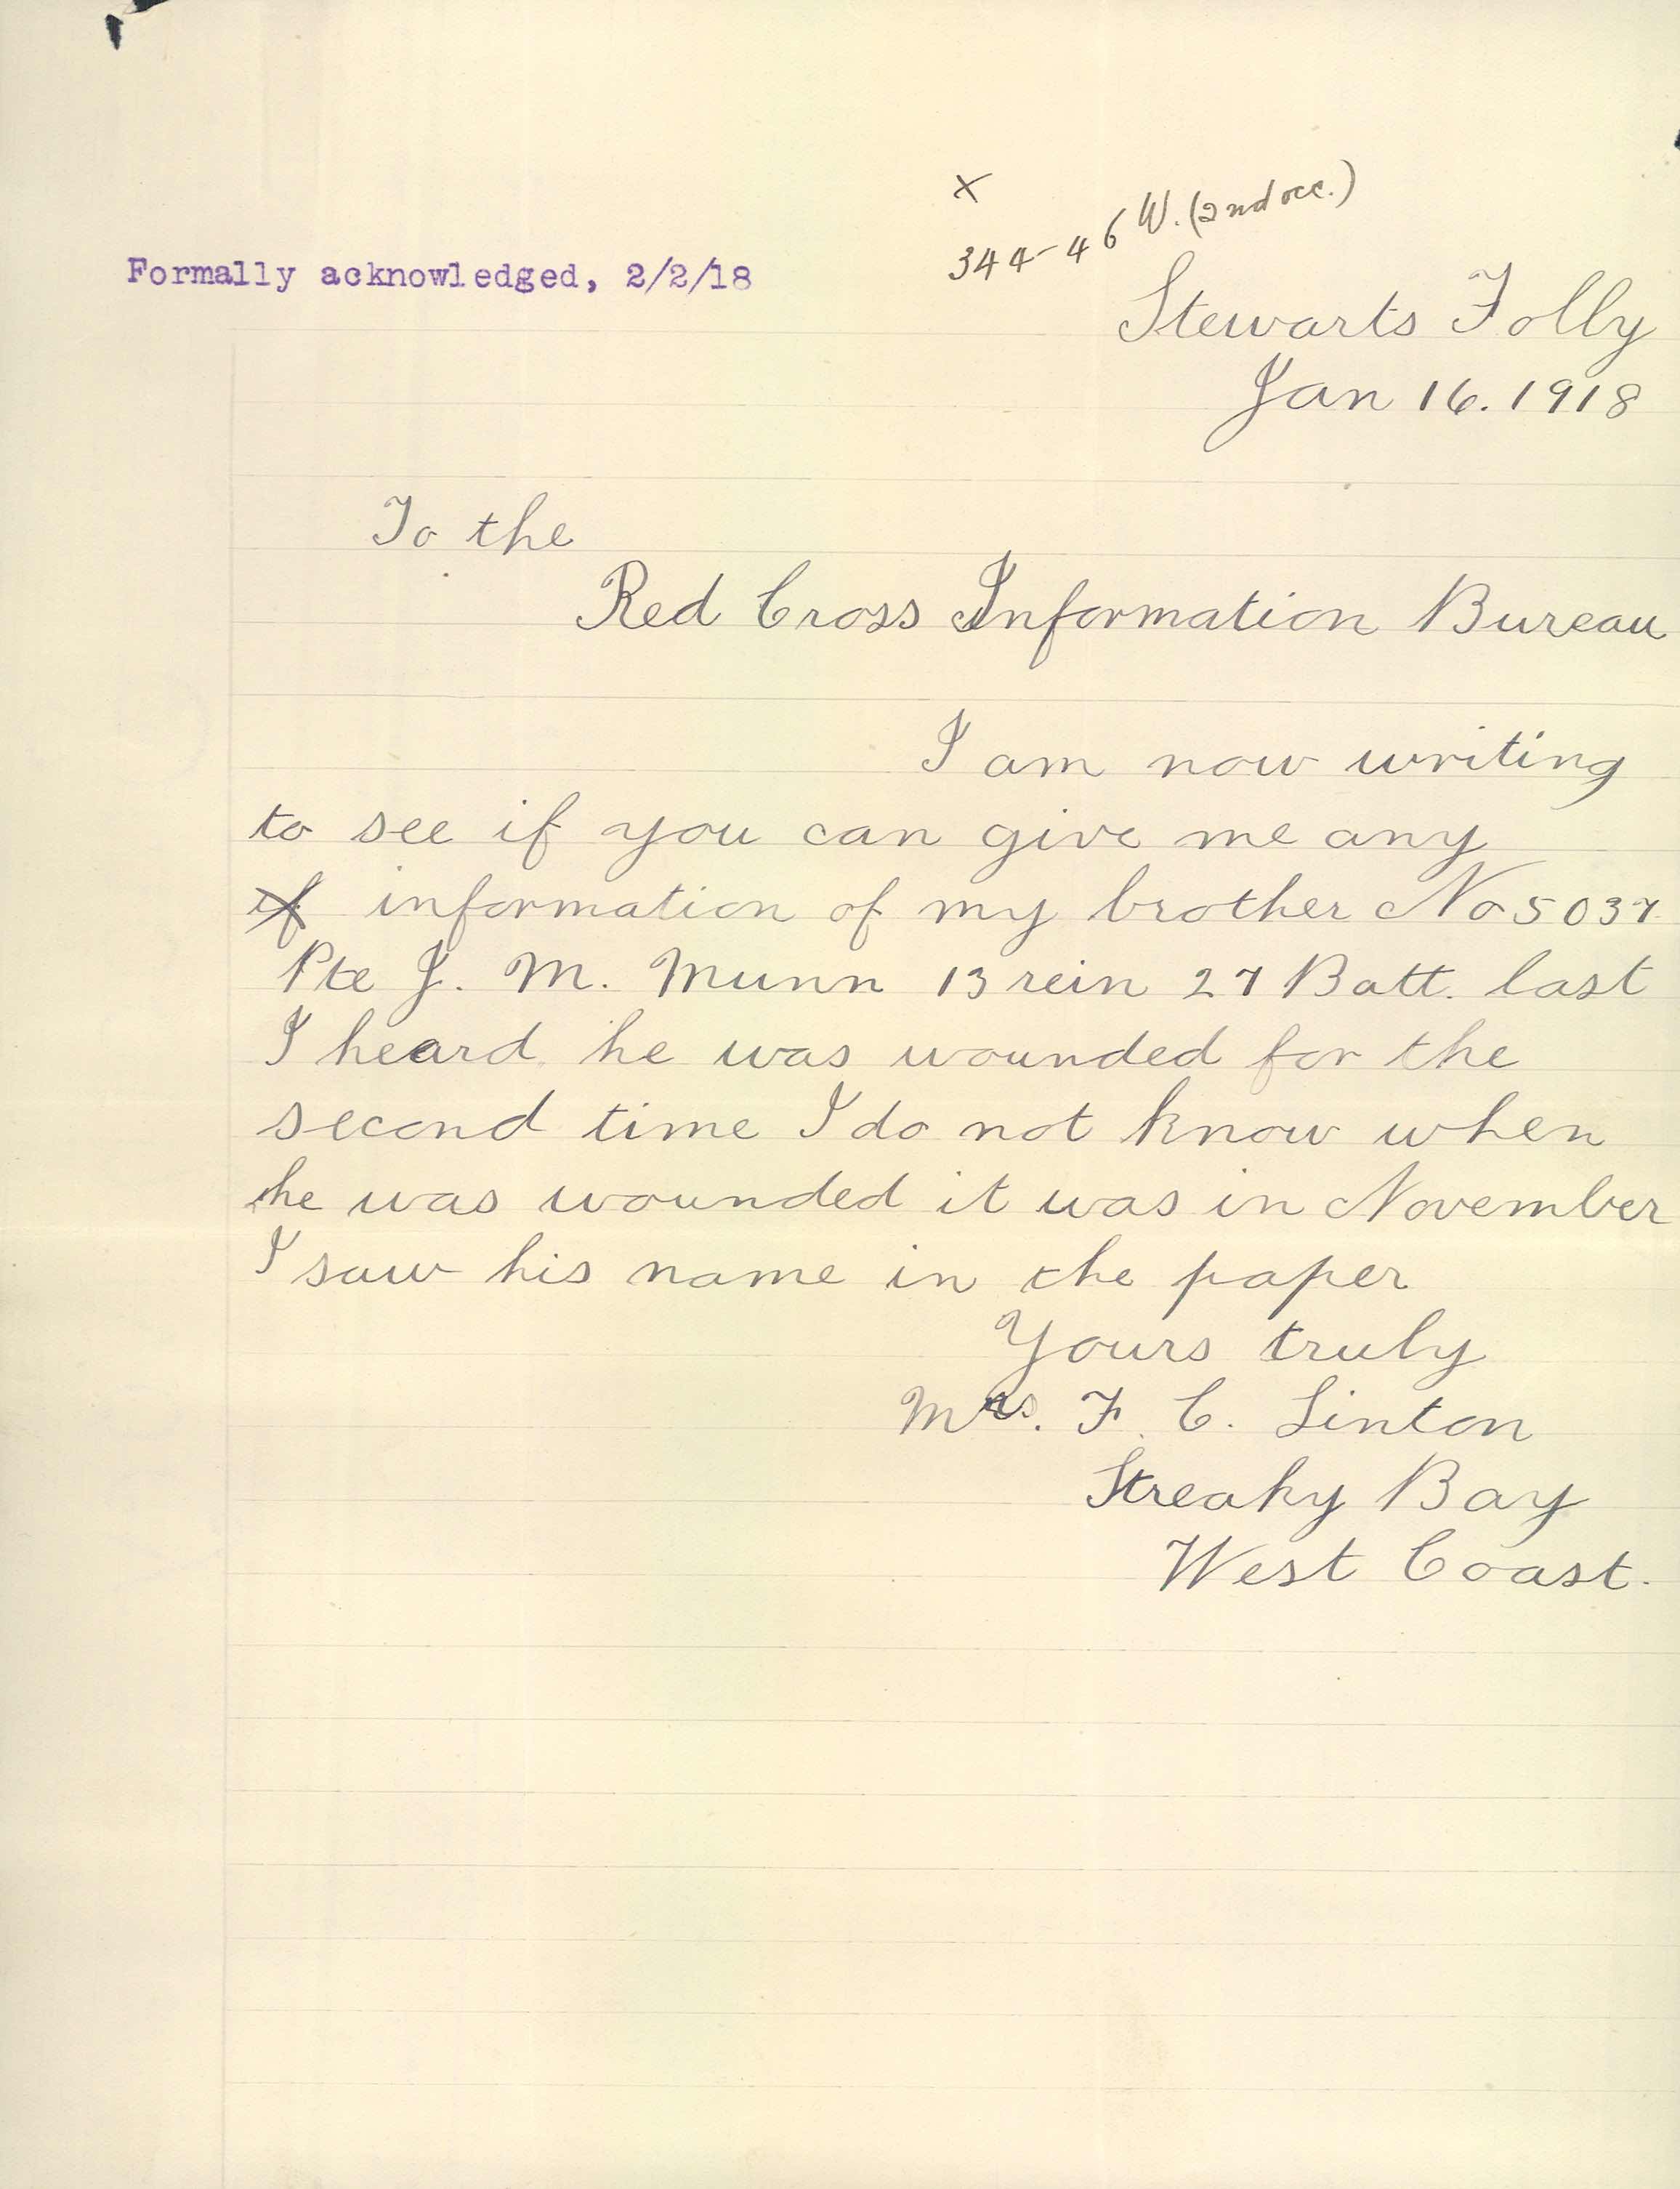 x
344-46 W. (2nd occ.)
Formally acknowledged, 2/2/18
Stewarts Folly
Jan 16. 1918
To the
Red Cross Information Bureau
I am now writing
to see if you can give me any
if information of my brother No 5037
Pte J. M. Munn 13 rein 27 Batt. last
I heard he was wounded for the
second time I do not know when
he was wounded it was in November
I saw his name in the paper
Yours truly
Mrs. F. C. Linton
Streaky Bay
West Coast.